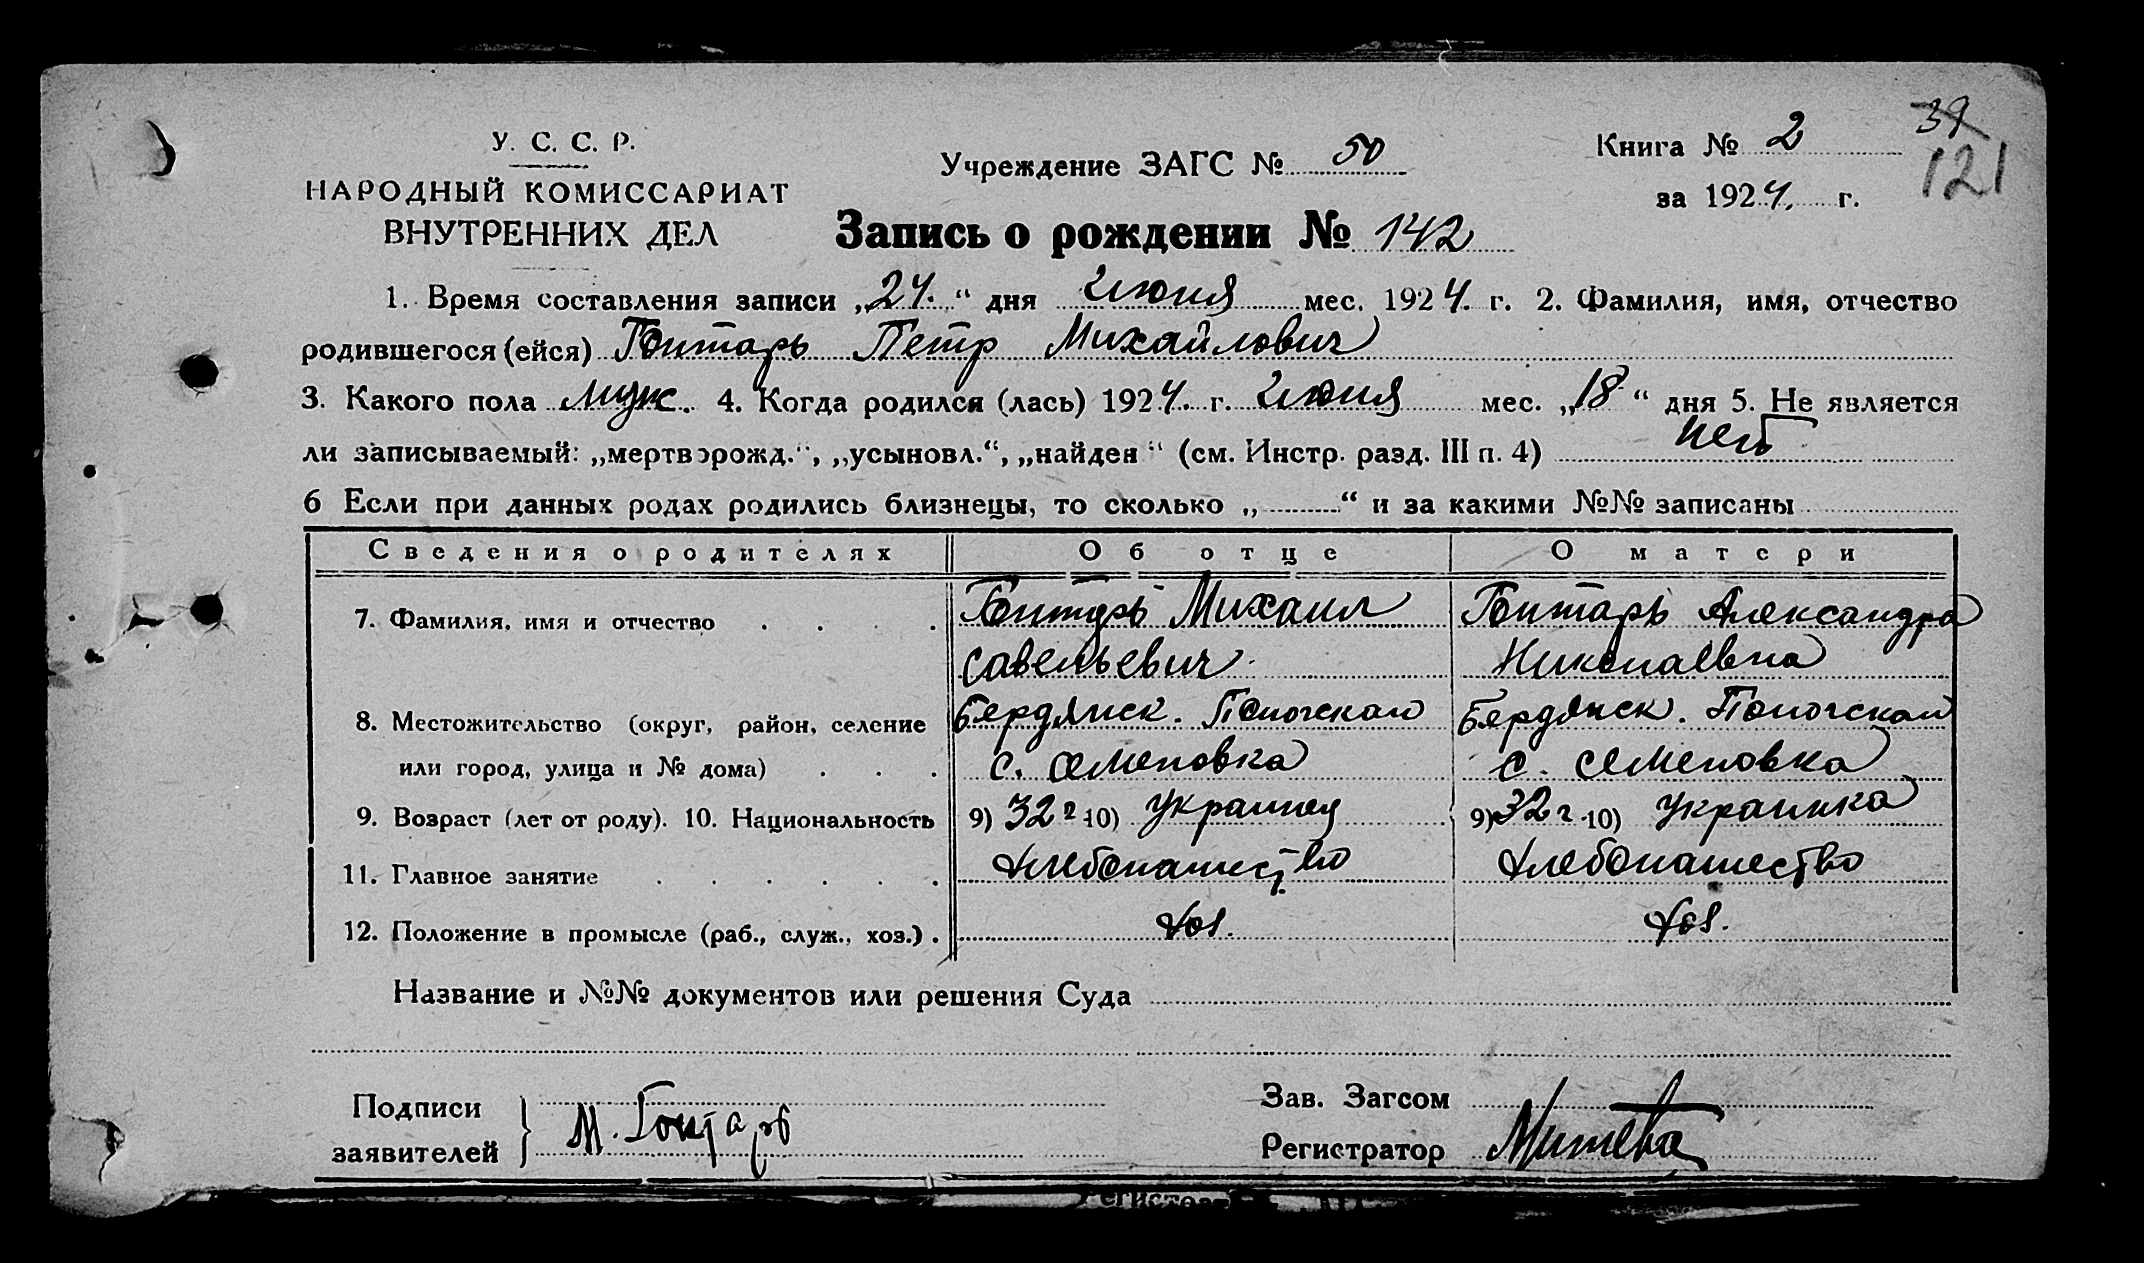 У. С. С. Р.
НАРОДНЫЙ КОМИССАРИАТ
ВНУТРЕННИХ ДЕЛ
Учреждение ЗАГС № 50
Книга № 2
за 1924. г.
39
121
Запись о рождении № 142
1. Время составления записи „24.“ дня июня мес. 1924. г. 2. Фамилия, имя, отчество
родившегося (ейся) Гонтарь Петр Михайлович
3. Какого пола муж. 4. Когда родился (лась) 1924. г. июня мес. „18“ дня 5. Не является
ли записываемый: „мертворожд.“, „усыновл.“, „найден“ (см. Инстр. разд. III п. 4) нет
6 Если при данных родах родились близнецы, то сколько „ “ и за какими №№ записаны
Сведения о родителях Об отце О матери
7. Фамилия, имя и отчество Гонтарь Михаил Гонтарь Александра
Савельевич Николаевна
8. Местожительство (округ, район, селение Бердянск. Пологском Бердянск. Пологском
или город, улица и № дома) с. Семеновка с. Семеновка
9. Возраст (лет от роду). 10. Национальность 9) 32 г 10) Украинец 9) 32 г 10) Украинка
11. Главное занятие Хлебопашество Хлебопашество
12. Положение в промысле (раб., служ., хоз.) Хоз. Хоз.
Название и №№ документов или решения Суда
Подписи
заявителей
М. Гонтарь
Зав. Загсом
Регистратор